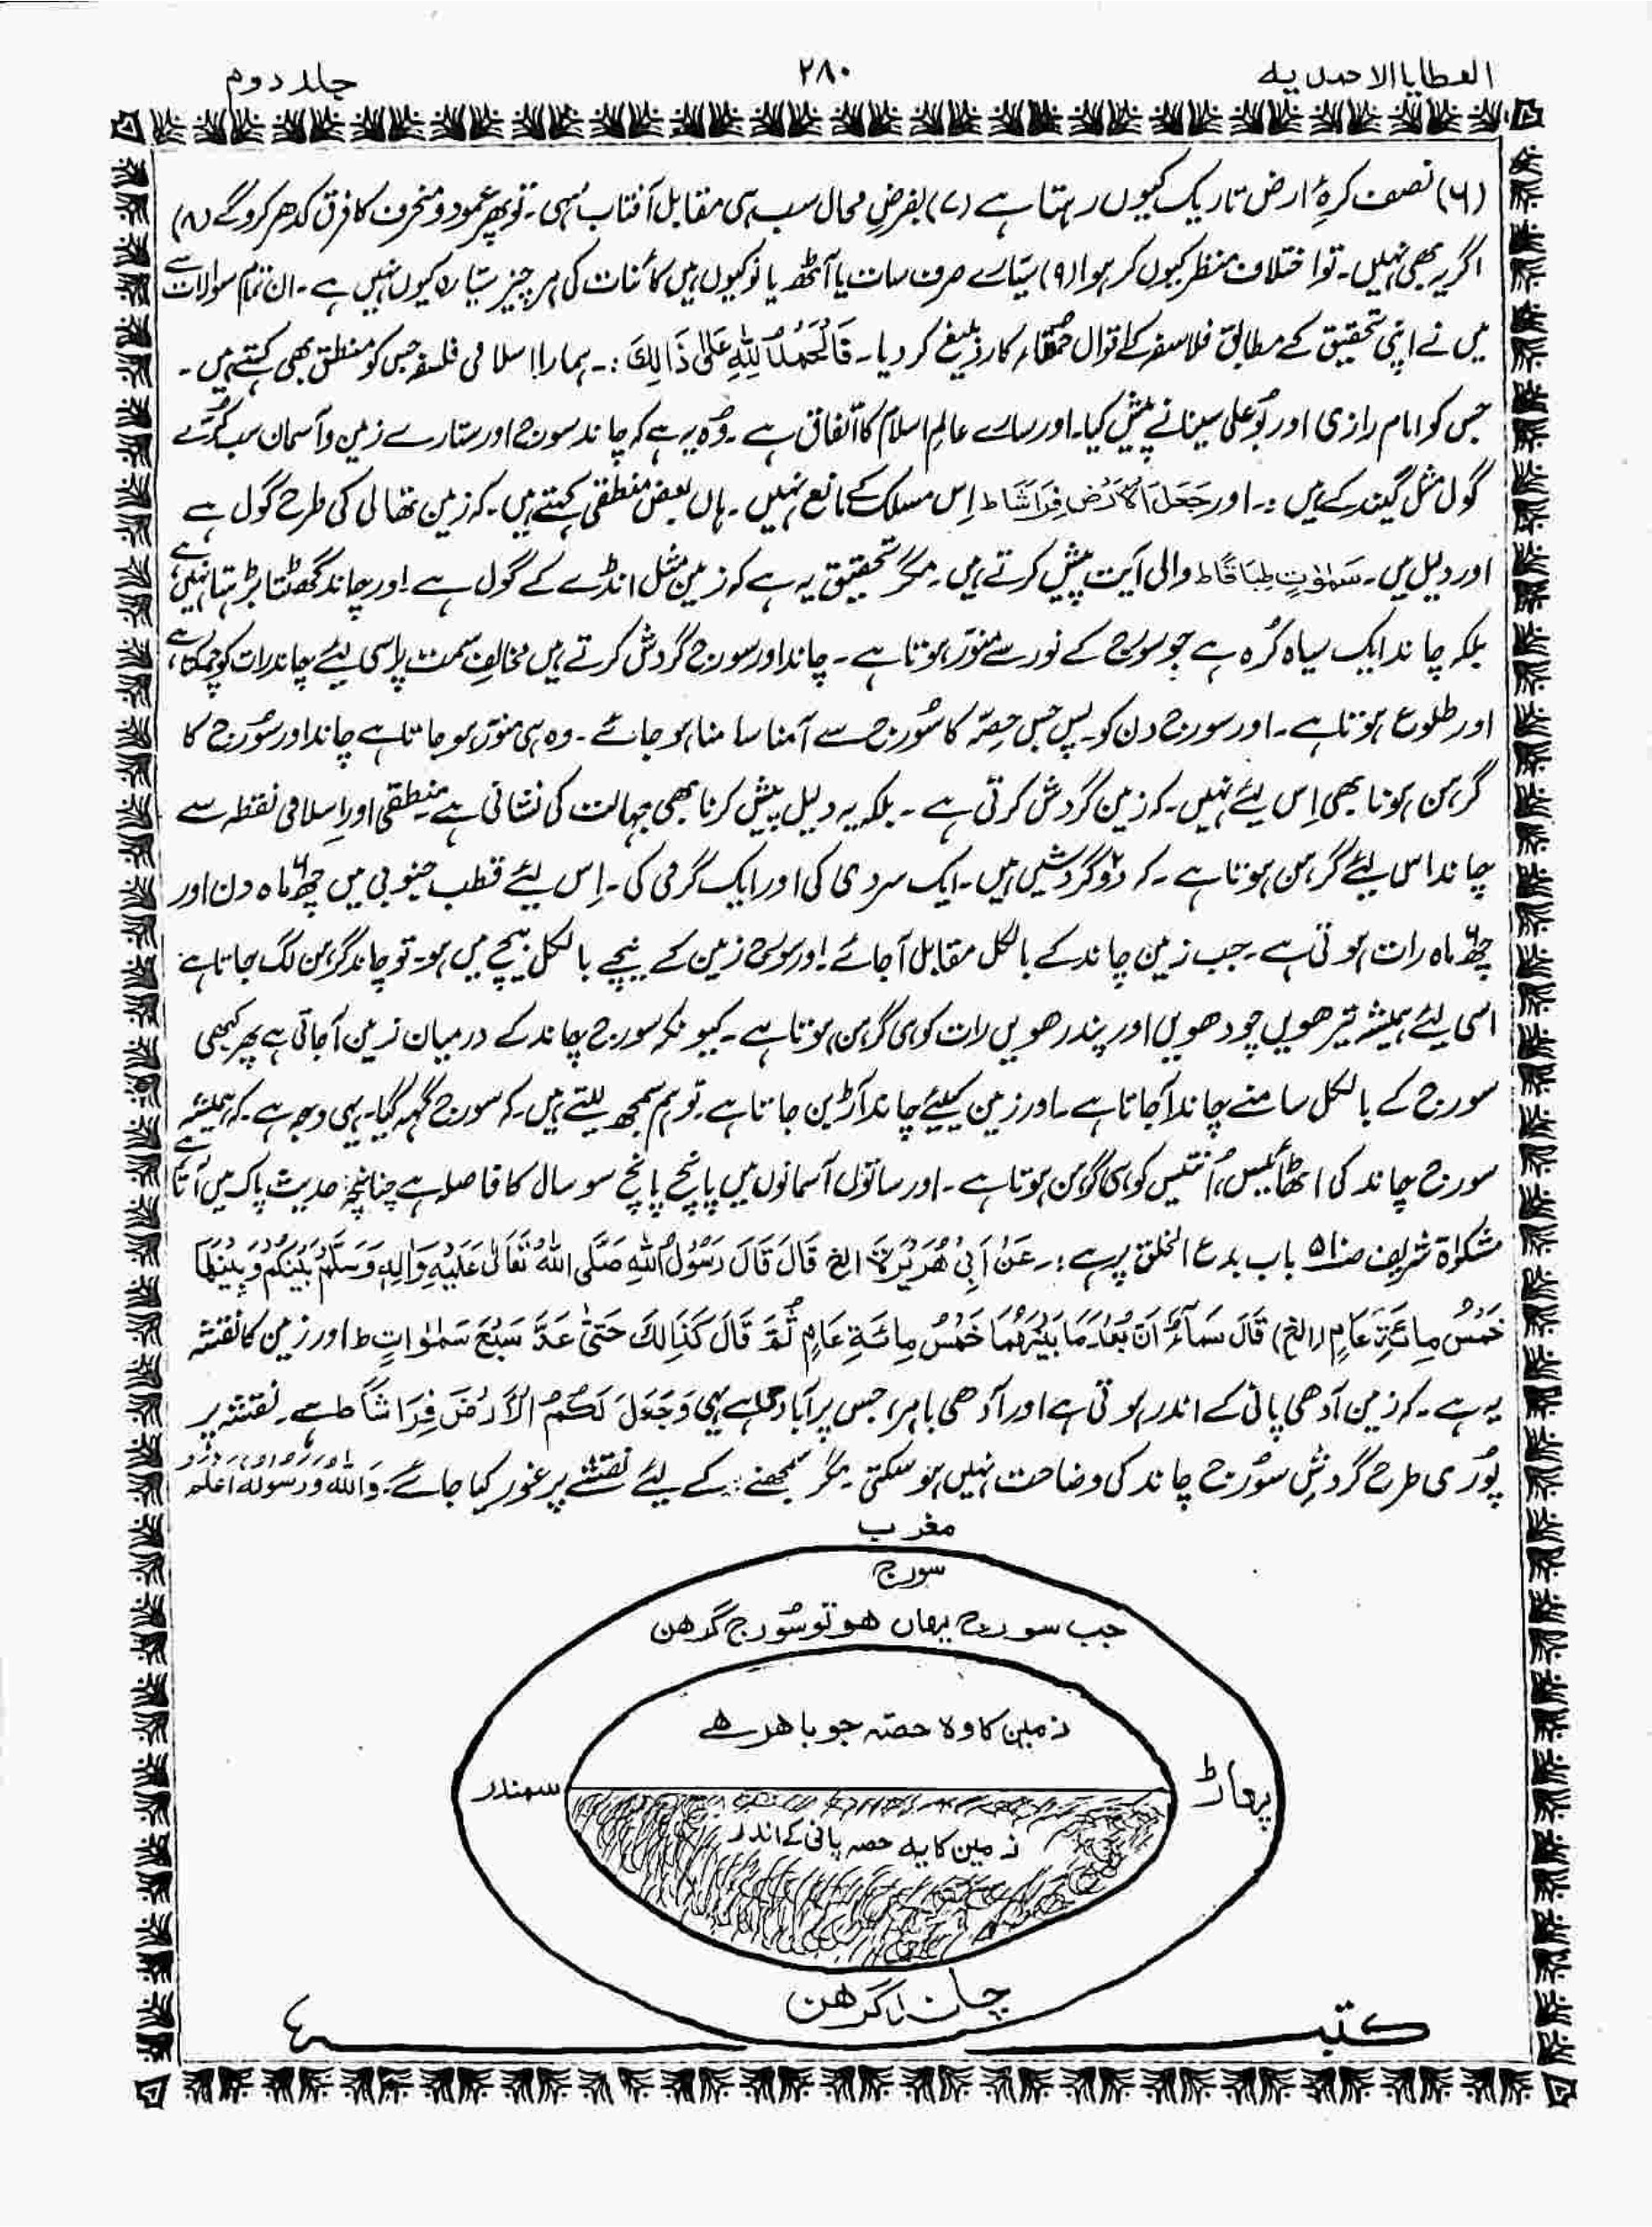 العطایا الاحمدیه ۲۸۰ جلد دوم
(۶) نصف کرۂ ارض تاریک کیوں رہتا ہے (۷) بفرضِ محال سب ہی مقابل آفتاب سہی۔ تو پھر عمود و منحرف کا فرق کدھر کرو گے (۸)
اگر یہ بھی نہیں۔ تو اختلاف منظر کیوں کر ہوا (۹) سیّارے صرف سات یا آٹھ یا نو کیوں ہیں کائنات کی ہر چیز سیّارہ کیوں نہیں ہے۔ ان تمام سوالات سے
میں نے اپنی تحقیق کے مطابق فلاسفہ کے اقوال حمقاء کا ردِّ بلیغ کر دیا۔ فَالْحَمْدُ لِلّٰهِ عَلٰی ذَالِكَ :۔ ہمارا اسلامی فلسفہ جس کو منطق بھی کہتے ہیں۔
جس کو امام رازی اور بُو علی سینا نے پیش کیا۔ اور سارے عالمِ اسلام کا اتّفاق ہے۔ وُہ یہ ہے کہ چاند سورج اور ستارے زمین و آسمان سب کُرّے
گول مثل گیند کے ہیں :۔ اور جَعَلَ الْاَرْضَ فِرَاشًا ط اِس مسلک کے مانع نہیں۔ ہاں بعض منطقی کہتے ہیں۔ کہ زمین تھالی کی طرح گول ہے
اور دلیل میں۔ سَمٰوٰتٍ طِبَاقًا ط والی آیت پیش کرتے ہیں۔ مگر تحقیق یہ ہے کہ زمین مثل انڈے کے گول ہے اور چاند گھٹتا بڑہتا نہیں ہے
بلکہ چاند ایک سیاہ کُرہ ہے جو سورج کے نور سے منوّر ہوتا ہے۔ چاند اور سورج گردش کرتے ہیں مخالف سمت پر اسی لیئے چاند رات کو چمکتا ہے
اور طلوع ہوتا ہے۔ اور سورج دن کو۔ پس جس حِصّہ کا سُورج سے آمنا سامنا ہو جائے۔ وہ ہی منوّر ہو جاتا ہے چاند اور سُورج کا
گرہن ہونا بھی اِس لیئے نہیں۔ کہ زمین گردش کرتی ہے۔ بلکہ یہ دلیل پیش کرنا بھی جہالت کی نشانی ہے منطقی اور اِسلامی نقطہ سے
چاند اس لیئے گرہن ہوتا ہے۔ کہ دو گردشیں ہیں۔ ایک سردی کی اور ایک گرمی کی۔ اِس لیئے قطب جنوبی میں چھ ماہ دن اور
چھ ماہ رات ہوتی ہے۔ جب زمین چاند کے بالکل مقابل آجائے اور سورج زمین کے نیچے بالکل بیچ میں ہو۔ تو چاند گرہن لگ جاتا ہے
اسی لیئے ہمیشہ تیرھویں چودھویں اور پندرھویں رات کو ہی گرہن ہوتا ہے۔ کیونکہ سورج چاند کے درمیان زمین آجاتی ہے پھر کبھی
سورج کے بالکل سامنے چاند آجاتا ہے۔ اور زمین کیلئے چاند آڑ بن جاتا ہے۔ تو ہم سمجھ لیتے ہیں۔ کہ سورج گہہ گیا۔ یہی وجہ ہے۔ کہ ہمیشہ
سورج چاند کی اٹھائیس، اُنتیس کو ہی گرہن ہوتا ہے۔ اور ساتوں آسمانوں میں پانچ پانچ سو سال کا فاصلہ ہے چنانچہ حدیث پاک میں آتا ہے
مشکوٰۃ شریف صفحہ ۵۱۰ باب بدء الخلق پر ہے :۔ عَنْ اَبِیْ هُرَيْرَةَ الخ قَالَ قَالَ رَسُوْلُ اللّٰهِ صَلَّی اللّٰهُ تَعَالٰی عَلَيْهِ وَاٰلِهٖ وَسَلَّمَ بَيْنَكُمْ وَبَيْنَهَا
خَمْسُ مِائَةِ عَامٍ (الخ) قَالَ سَمَآءَ اَنْ بُعْدَ مَا بَيْنَهُمَا خَمْسُ مِائَةِ عَامٍ ثُمَّ قَالَ كَذَالِكَ حَتّٰی عَدَّ سَبْعَ سَمٰوَاتٍ ط اور زمین کا نقشہ
یہ ہے۔ کہ زمین آدھی پانی کے اندر ہوتی ہے اور آدھی باہر، جس پر آبادی ہے یہی وَجَعَلَ لَكُمُ الْاَرْضَ فِرَاشًا ط ہے۔ نقشہ پر
پُوری طرح گردشِ سُورج چاند کی وضاحت نہیں ہو سکتی۔ مگر سمجھنے کے لیئے نقشے پر غور کیا جائے۔ وَاللّٰهُ وَرَسُوْلُهٗ اَعْلَمُ
مغرب
سورج
جب سورج یہاں ہو تو سُورج گرہن
زمین کا وہ حصّہ جو باہر ہے
پہاڑ
سمندر
زمین کا یہ حصہ پانی کے اندر
چاند گرہن
کتبہ